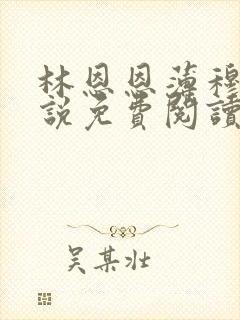 林恩恩薄穆
說免費閱讀
吴某壮